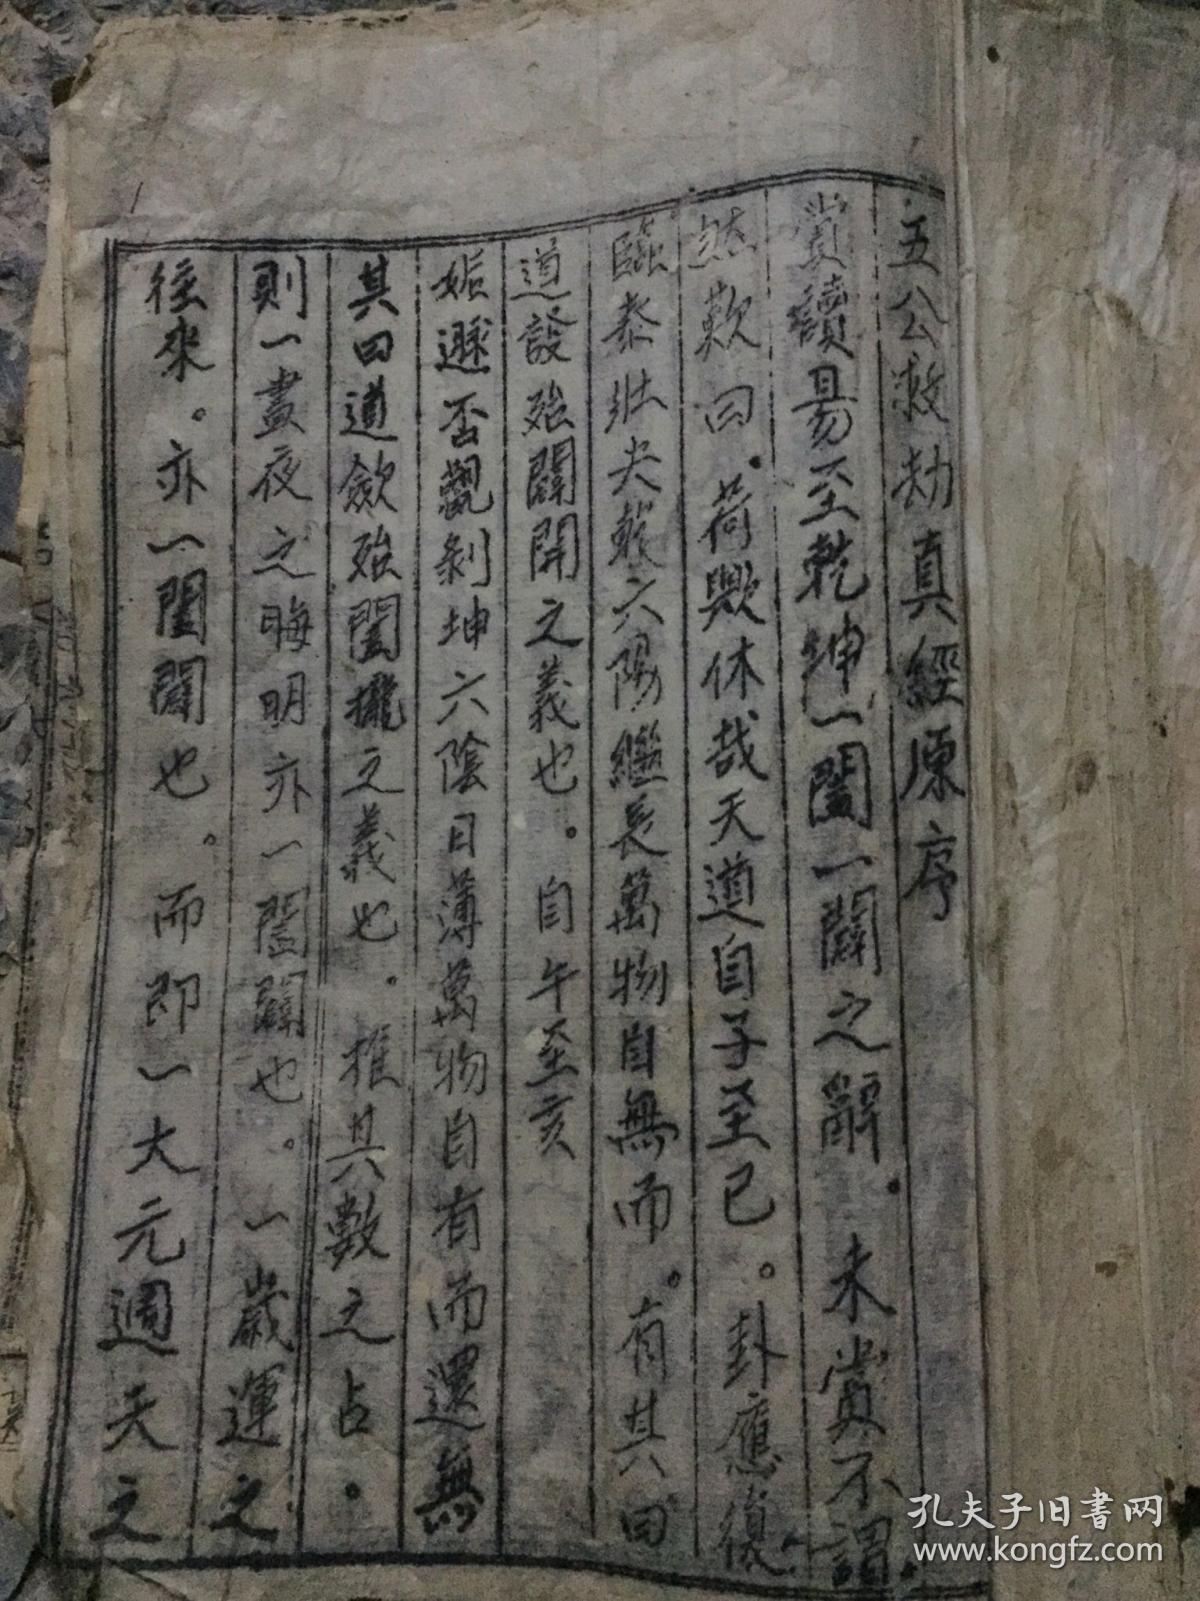 五公救劫真經原序
嘗讀易至乾坤一闔一闢之辭。未嘗不謂
然歎曰。荷歟休哉天道自子至巳。卦應復
臨泰壯夬乾六陽繼長萬物自無而。有其曰
道設殆闢開之義也。自午至亥
姤遯否觀剝坤六陰日薄萬物自有而還無
其曰道歛殆闔攏之義也。推其數之占。
則一晝夜之晦明亦一闔闢也。一歲運之
往來。亦一闔闢也。而即一大元週天之
孔夫子旧书网
www.kongfz.com